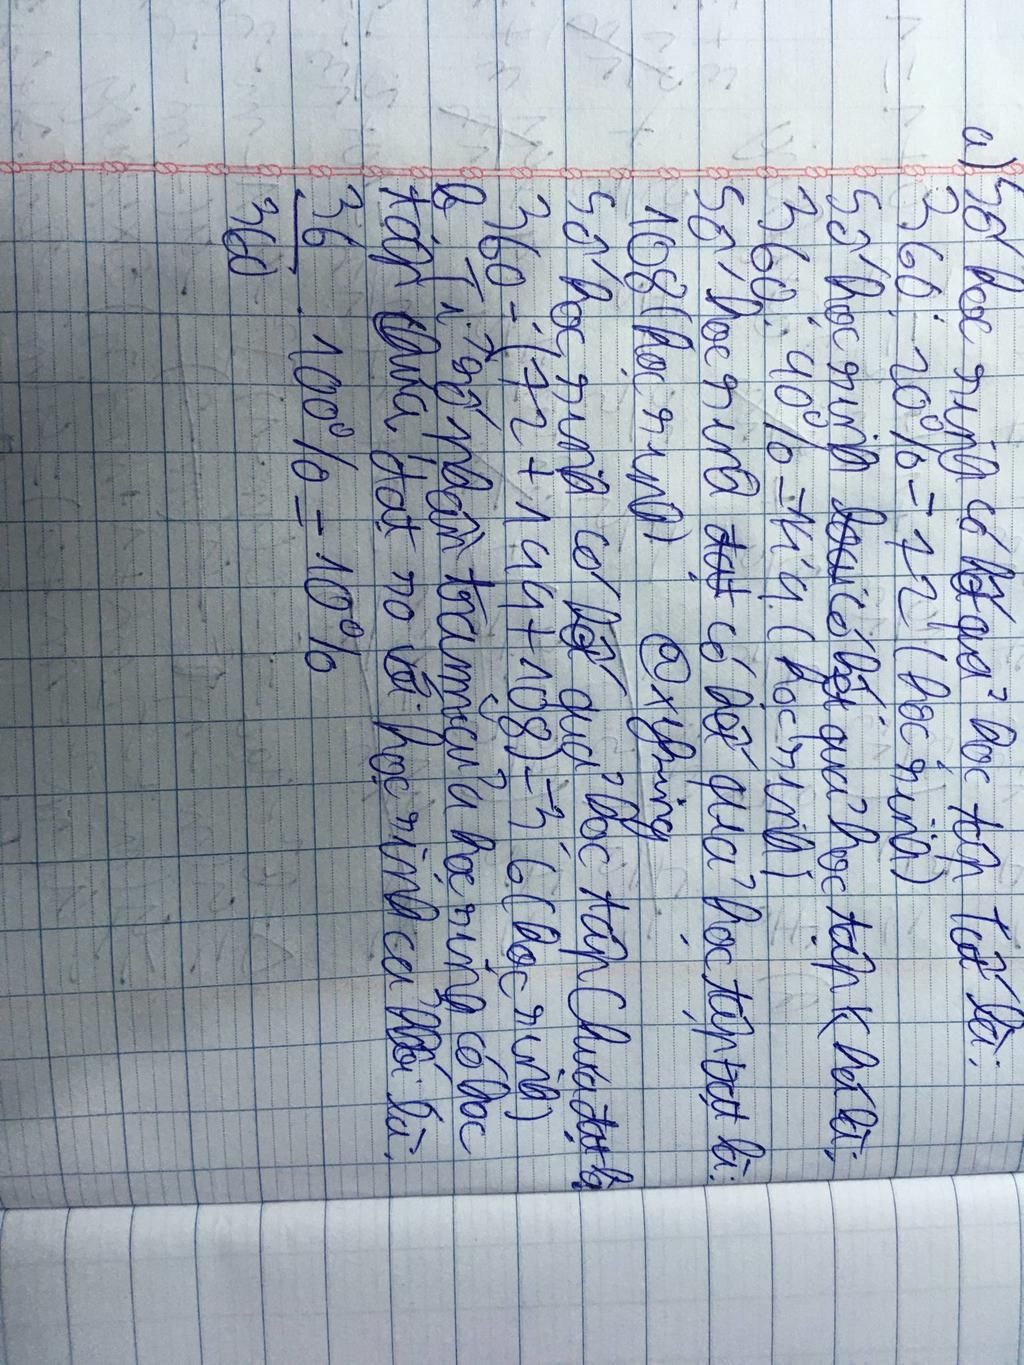 a) Số học sinh có kết quả học tập Tốt là:
360 . 20% = 72 (học sinh)
Số học sinh có kết quả học tập Khá là:
360 . 40% = 144 (học sinh)
Số học sinh đạt có kết quả học tập Đạt là:
108 (học sinh) @xyhing
Số học sinh có kết quả học tập Chưa đạt là
360 - (72 + 144 + 108) = 36 (học sinh)
b Tỉ số phần trăm của học sinh có học
tập chưa đạt so với học sinh cả khối là:
36/360 . 100% = 10%